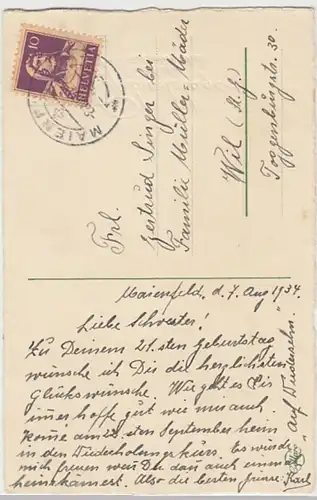 10
HELVETIA
MAIENF
Frl.
Gertrud Singer bei
Familie Müller-Mäder
Wil (St. G.)
Toggenburgstr. 30.
Maienfeld, d. 7. Aug 1934.
Liebe Schwester!
Zu Deinem 21.sten Geburtstag
wünsche ich Dir die herzlichsten
Glückswünsche. Wie geht es Dir
immer hoffe gut wie mir auch.
Komme am 22.sten September heim
in den Wiederholungskurs. Es würde
mich freuen wen Du dan auch einmal
heimkämest. Also die besten Grüsse Karl
Auf Wiedersehn."